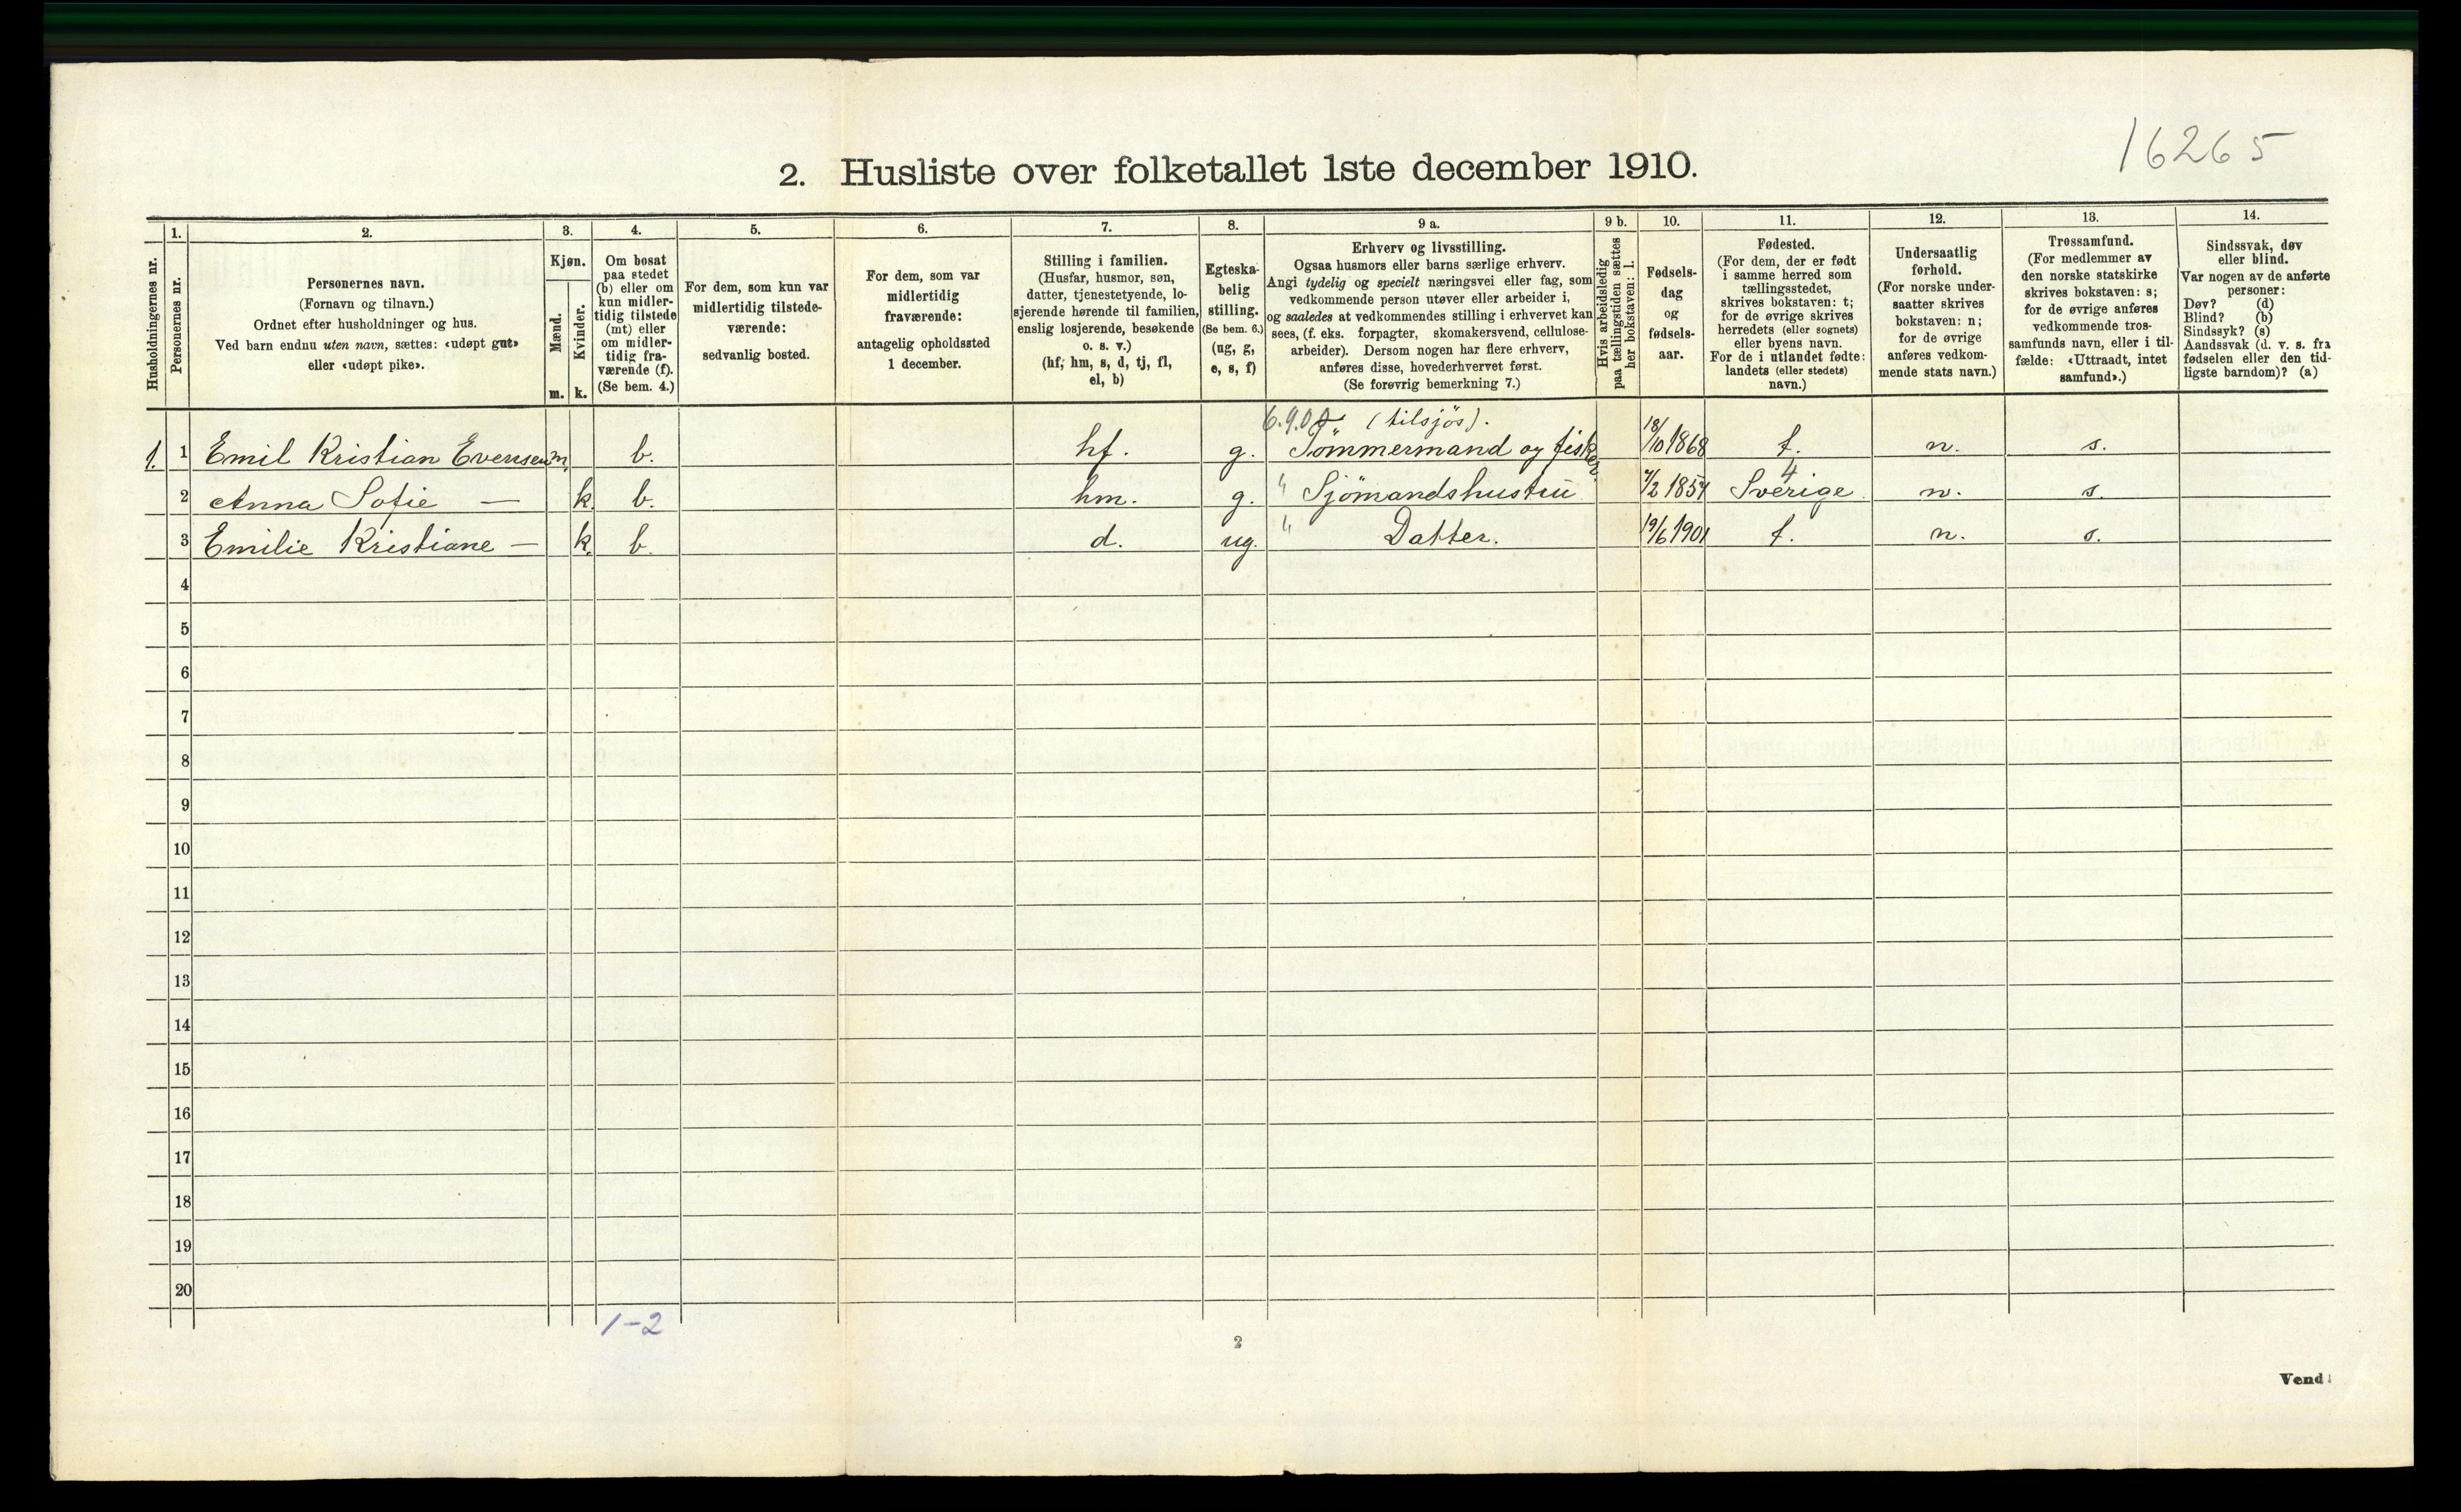 16265
2. Husliste over folketallet 1ste december 1910.
Husholdningernes nr.
1.
Personernes nr.
2.
Personernes navn.
(Fornavn og tilnavn.)
Ordnet efter husholdninger og hus.
Ved barn endnu uten navn, sættes: «udøpt gut»
eller «udøpt pike».
3.
Kjøn.
Mænd.
Kvinder.
m. k.
4.
Om bosat
paa stedet
(b) eller om
kun midler-
tidig tilstede
(mt) eller
om midler-
tidig fra-
værende (f).
(Se bem. 4.)
5.
For dem, som kun var
midlertidig tilstede-
værende:
sedvanlig bosted.
6.
For dem, som var
midlertidig
fraværende:
antagelig opholdssted
1 december.
7.
Stilling i familien.
(Husfar, husmor, søn,
datter, tjenestetyende, lo-
sjerende hørende til familien,
enslig losjerende, besøkende
o. s. v.)
(hf, hm, s, d, tj, fl,
el, b)
8.
Egteska-
belig
stilling.
(Se bem. 6.)
(ug, g,
e, s, f)
9 a.
Erhverv og livsstilling.
Ogsaa husmors eller barns særlige erhverv.
Angi tydelig og specielt næringsvei eller fag, som
vedkommende person utøver eller arbeider i,
og saaledes at vedkommendes stilling i erhvervet kan
sees, (f. eks. forpagter, skomakersvend, cellulose-
arbeider). Dersom nogen har flere erhverv,
anføres disse, hovederhvervet først.
(Se forøvrig bemerkning 7.)
9 b.
Hvis arbeidsledig
paa tællingstiden sættes
her bokstaven: l.
10.
Fødsels-
dag
og
fødsels-
aar.
11.
Fødested.
(For dem, der er født
i samme herred som
tællingsstedet,
skrives bokstaven: t;
for de øvrige skrives
herredets (eller sognets)
eller byens navn.
For de i utlandet fødte:
landets (eller stedets)
navn.)
12.
Undersaatlig
forhold.
(For norske under-
saatter skrives
bokstaven: n;
for de øvrige
anføres vedkom-
mende stats navn.)
13.
Trossamfund.
(For medlemmer av
den norske statskirke
skrives bokstaven: s;
for de øvrige anføres
vedkommende tros-
samfunds navn, eller i til-
fælde: «Uttraadt, intet
samfund».)
14.
Sindssvak, døv
eller blind.
Var nogen av de anførte
personer:
Døv? (d)
Blind? (b)
Sindssyk? (s)
Aandssvak (d. v. s. fra
fødselen eller den tid-
ligste barndom)? (a)
(tilsjös).
1. 1 Emil Kristian Evensen m. b. hf. g. Tömmermand og fisker 18/10 1868 t. n. s.
4
2 Anna Sofie — k. b. hm. g. " Sjömandshustru Sverige n. s.
3 Emilie Kristiane — k. b. d. ug. " Datter. 19/6 1901 t. n. s.
4
5
6
7
8
9
10
11
12
13
14
15
16
17
18
19
20
1-2
2
Vend!